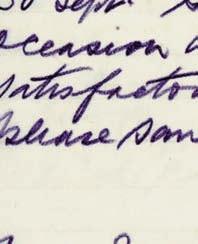 30 Sept. S
occasion a
Satisfactor
Please San